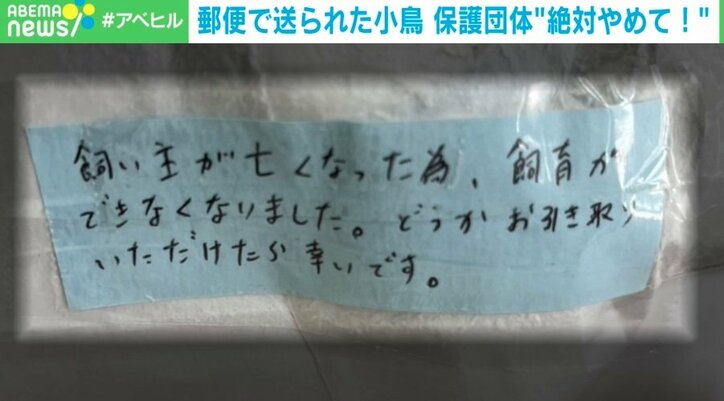 ABEMA news #アベヒル 郵便で送られた小鳥 保護団体"絶対やめて！"
飼い主が亡くなった為、飼育が
できなくなりました。どうかお引き取り
いただけたら幸いです。